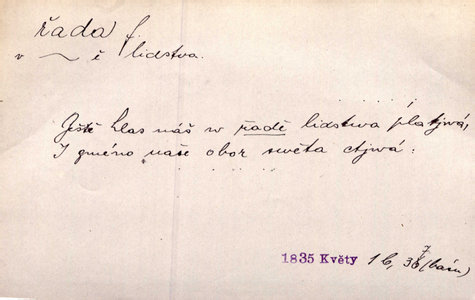 řada
v ~ ě lidstva.
Ještě hlas náš w řadě lidstwa platjwá,
I gméno naše obor swěta ctjwá.
1835 Květy 16, (báseň)